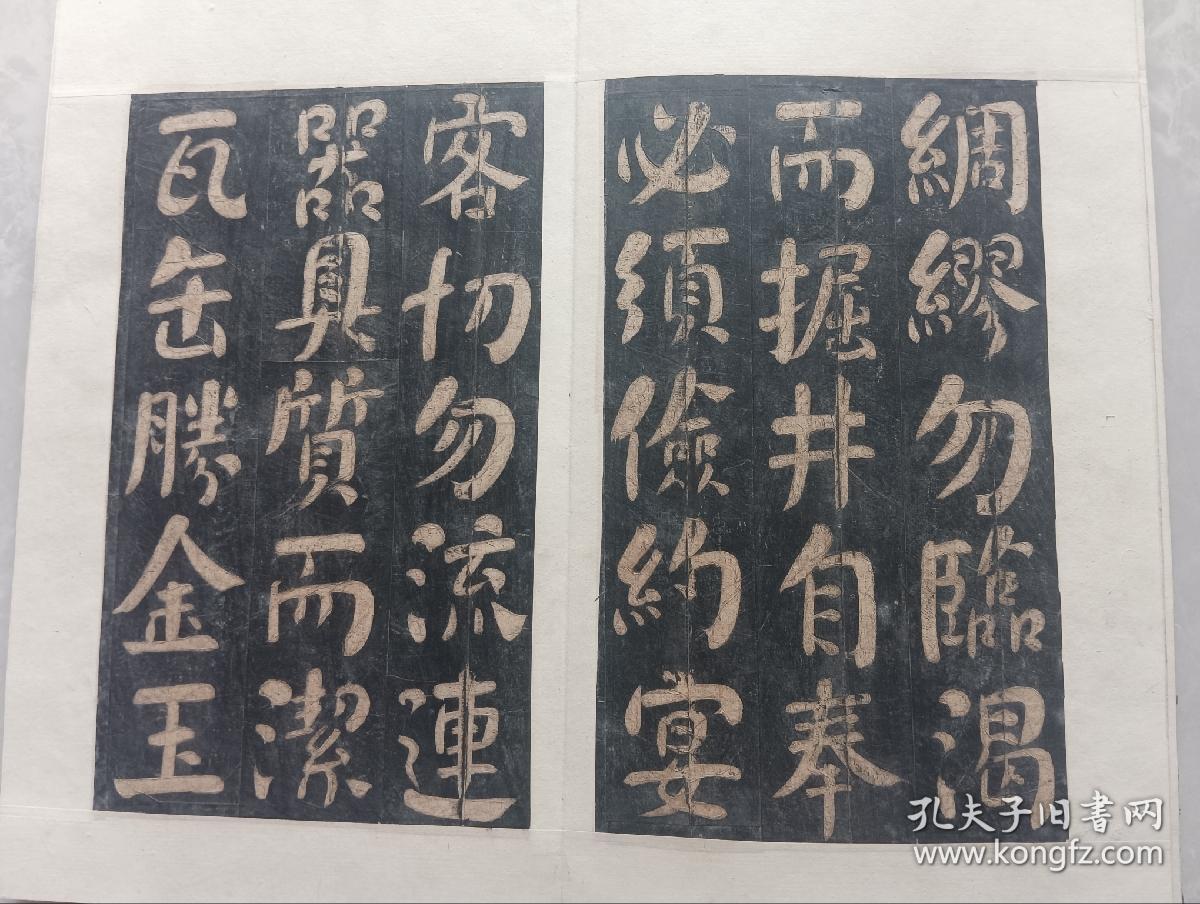 綢繆勿臨渴
而掘井自奉
必須儉約宴
客切勿流連
器具質而潔
瓦缶勝金玉
孔夫子旧书网
www.kongfz.com